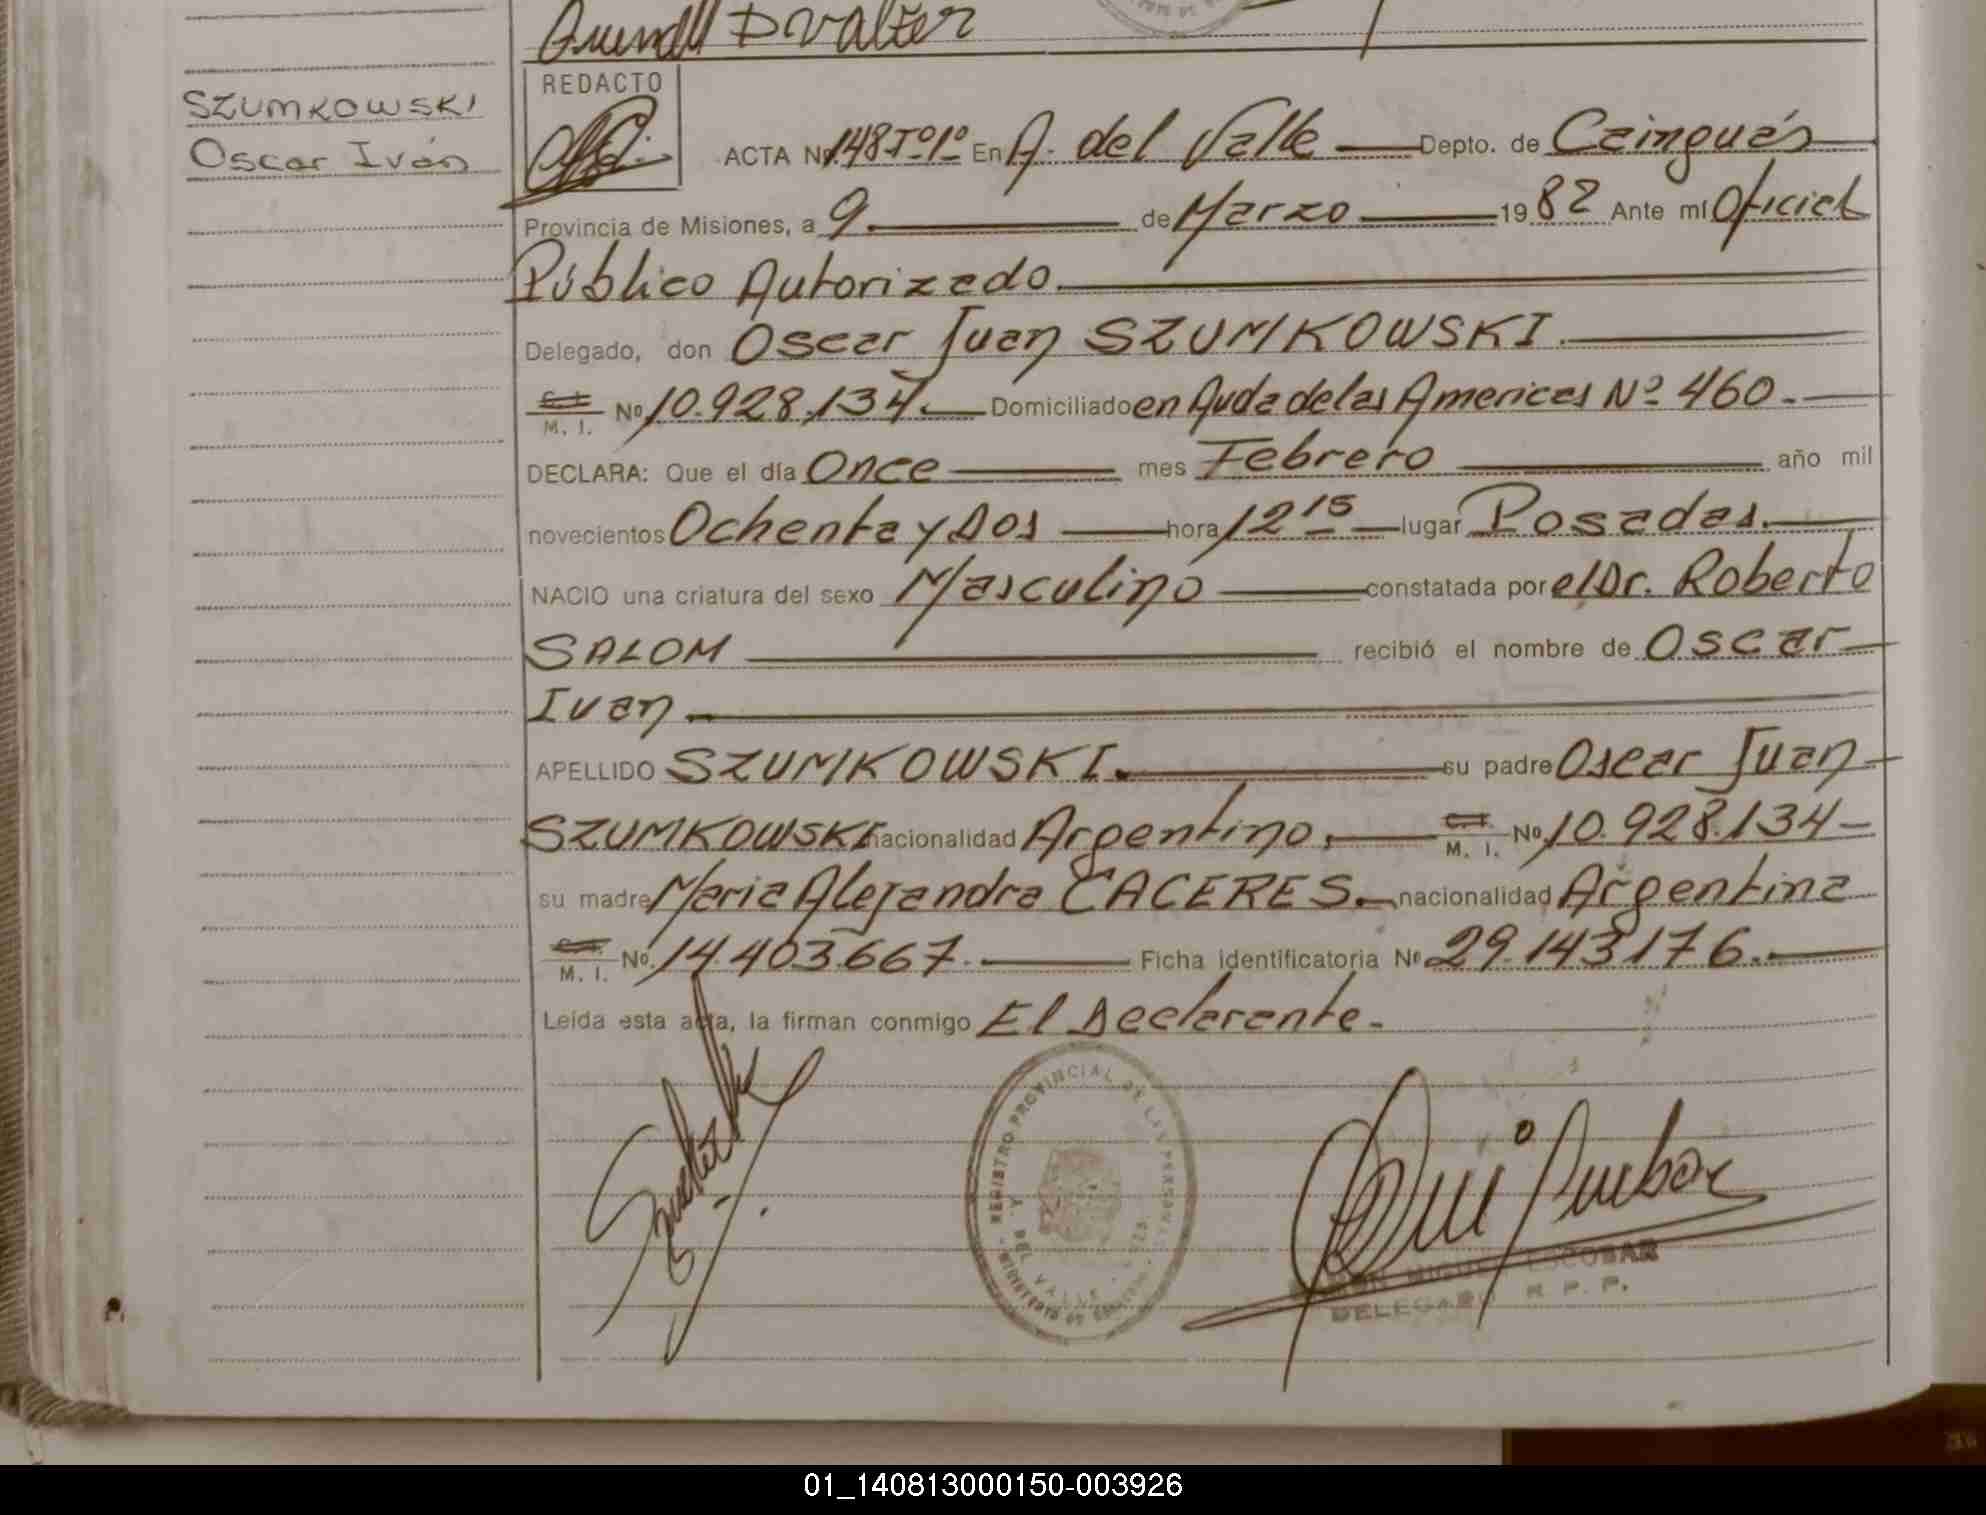 D Valter
SZUMKOWSKI
Oscar Iván
REDACTO
ACTA No. 148 Tº1º En A. del Valle Depto. de Cainguás
Provincia de Misiones, a 9 de Marzo 1982 Ante mí Oficial
Público Autorizado.
Delegado, don Oscar Juan SZUMKOWSKI.
C. I. M. I. Nº 10.928.134. Domiciliado en Avda de las Americas Nº 460.
DECLARA: Que el día Once mes Febrero año mil
novecientos Ochenta y Dos hora 12 15 lugar Posadas.
NACIO una criatura del sexo Masculino constatada por el Dr. Roberto
SALOM recibió el nombre de Oscar
Ivan
APELLIDO SZUMKOWSKI. su padre Oscar Juan
SZUMKOWSKI nacionalidad Argentino. C. I. M. I. Nº 10.928.134
su madre Maria Alejandra CACERES. nacionalidad Argentina
C. I. M. I. No. 14.403.667. Ficha identificatoria Nº 29.143.176.
Leída esta acta, la firman conmigo El Declarante.
REGISTRO PROVINCIAL DE LAS PERSONAS
DEL VALLE
MIGUEL ESCOBAR
DELEGADO R. P. P.
01_140813000150-003926